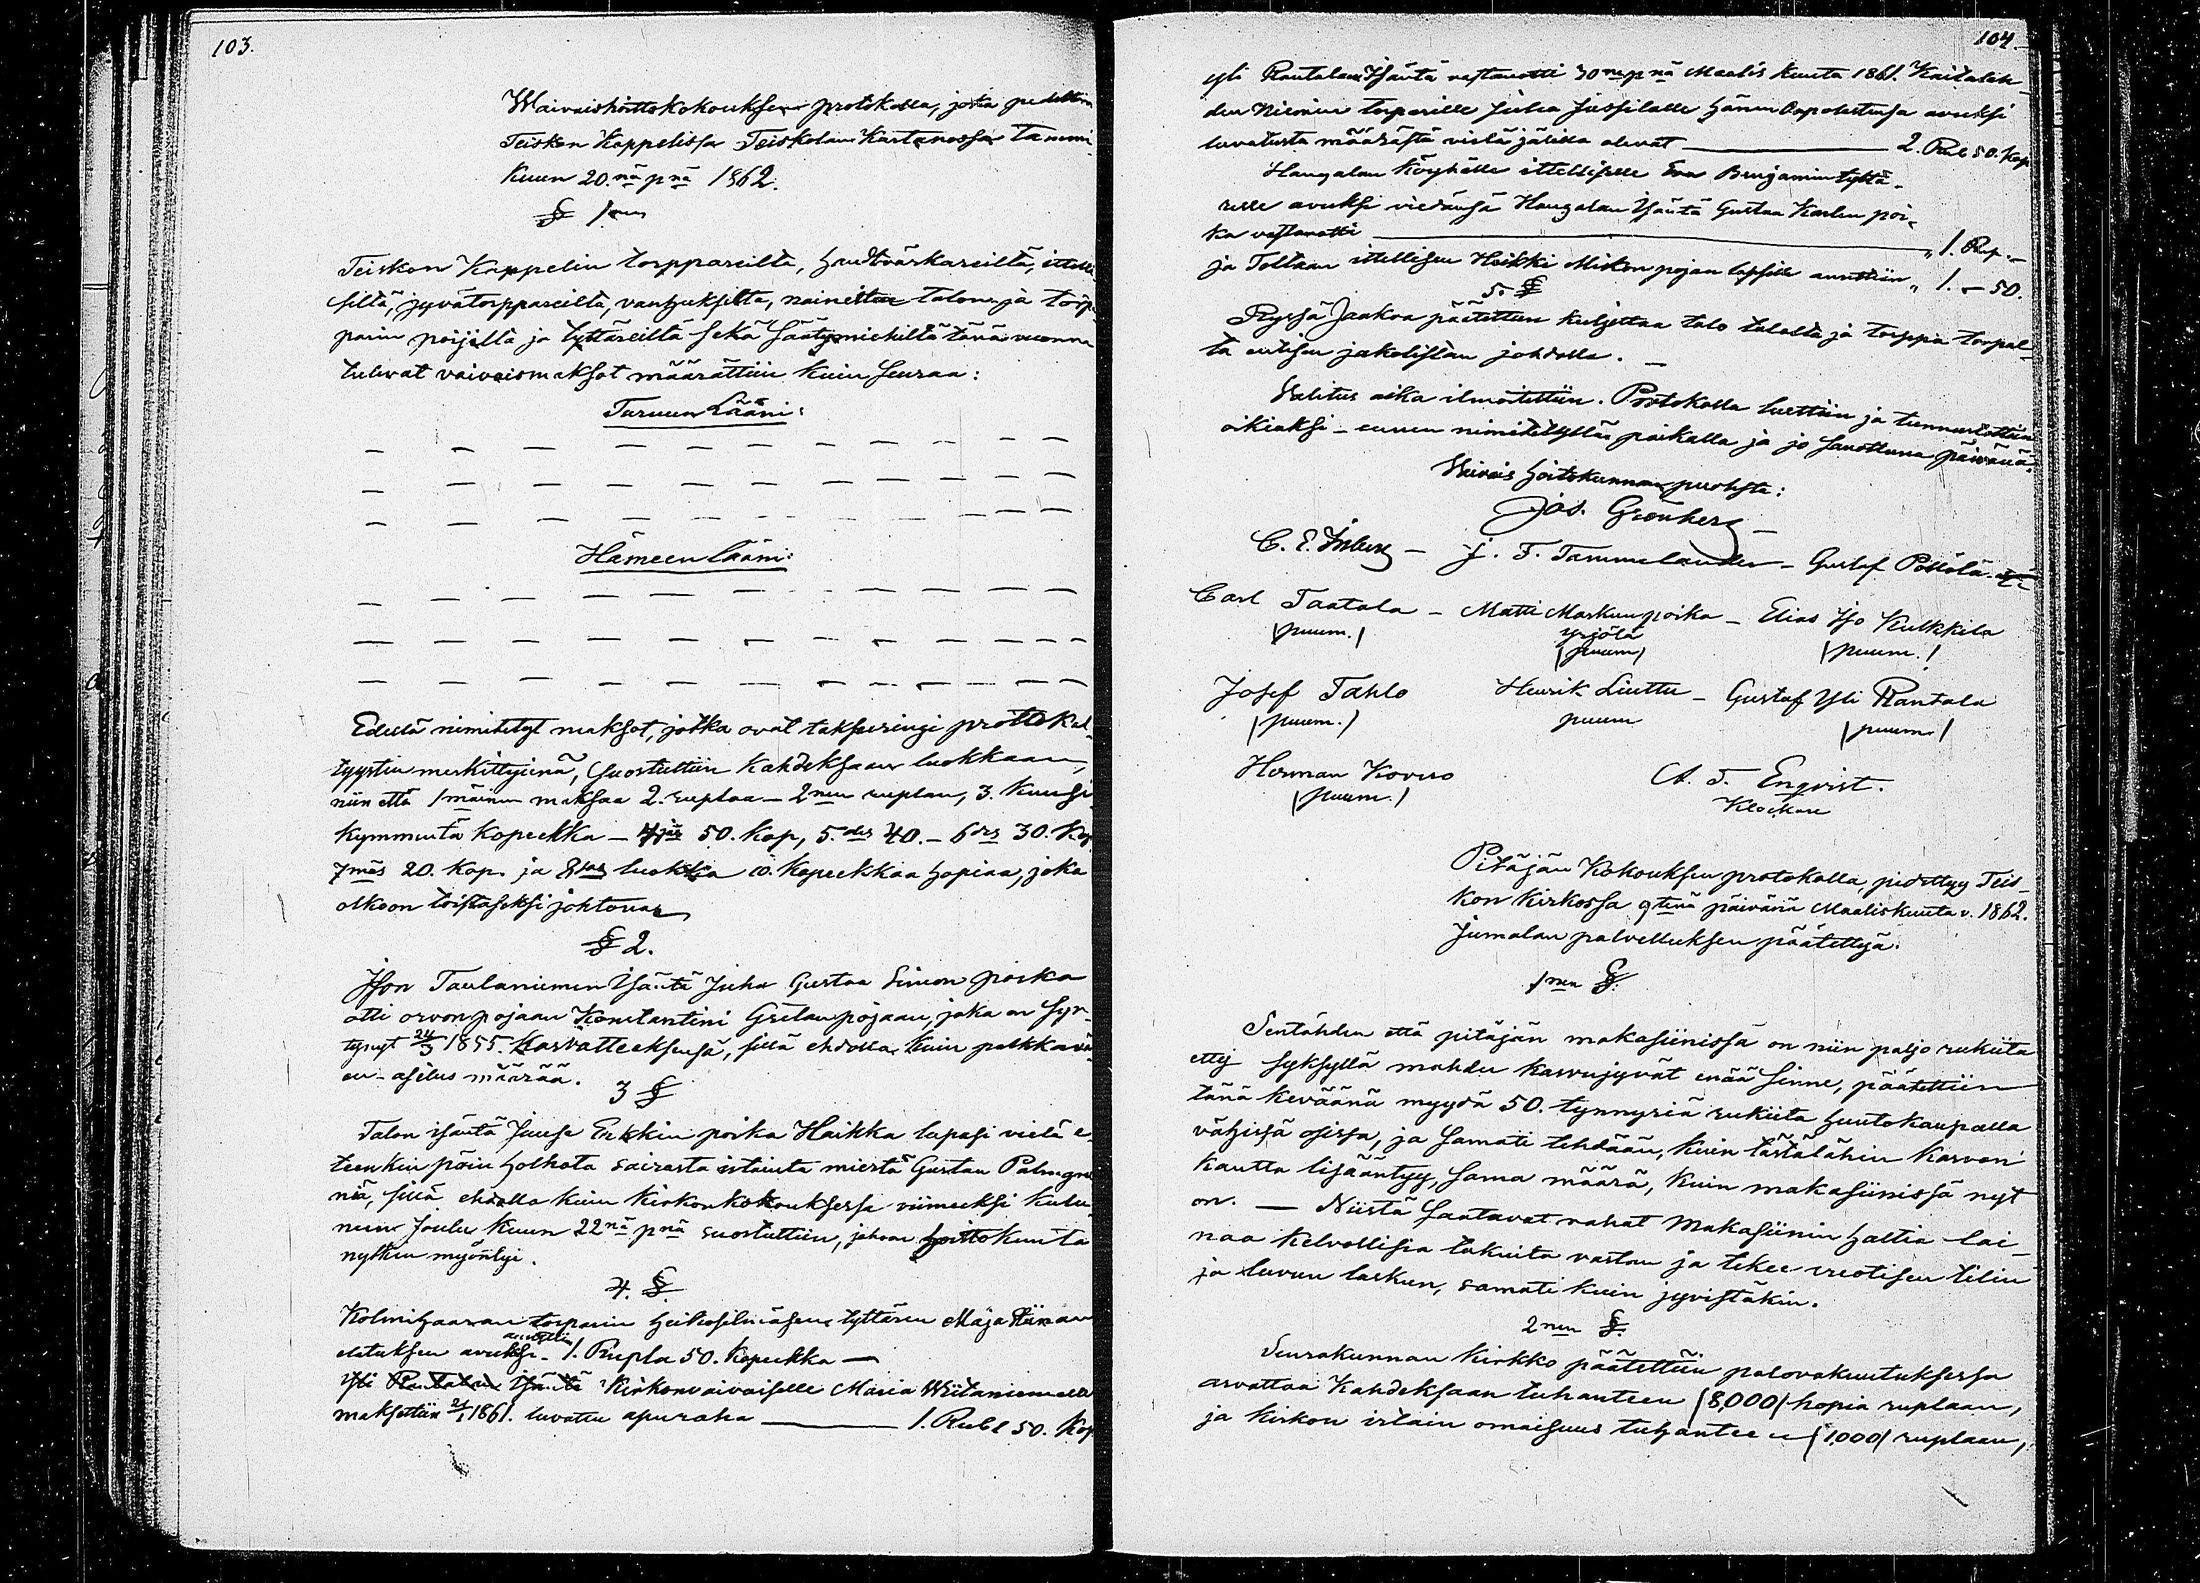 103.
Waivaishoittokokouksen protokolla, joka pidettiin
Teiskon Kappelissa Teiskolan Kartanossa Tammi-
kuun 20.nä pnä 1862.
§ 1nen
Teiskon Kappelin torppareilta, handtvärkareiltä, ittelli-
siltä, jyvätorppareilta, vanhuksilta, naineitten talon ja torp-
parin pojilta ja tyttäreiltä sekä Säätymiehiltä tänä vuonna
tulevat vaivaismaksot määrättiin kuin seuraa:
Turuun Lääni:
— — — — — — — — — — —
— — — — — — — — — — —
— — — — — — — — — — —
Hämeen Lääni:
— — — — — — — — — — —
— — — — — — — — — — —
— — — — — — — — — — —
Edellä nimitetyt maksot, jotka ovat takseringi prottokol-
tyystin merkittyinä, suostuttiin kahdeksaan luokkaan,
niin että 1mäinen maksaa 2. ruplaa — 2nen ruplan, 3. kuusi-
kymmentä kopeekka — 4jäs 50. kop, 5.des 40. — 6des 30. kop
7mäs 20. kop. ja 8sas luokka 10. kopeekkaa hopiaa, joka
olkoon toistaseksi johtona.
§ 2.
Ison Taulaniemen Isäntä Juha Gustaa Simon poika
otti orvon pojaan Konstantini Gretan pojaan, joka on syn-
tynyt 24/3 1855. Kasvatteeksensa, sillä ehdolla kuin palkkavä-
en-asetus määrää.
3 §
Talon isäntä Juuse Erkkin poika Haikka lupasi vielä e-
teenkin päin holhota sairasta istuinta miestä Gustaa Palmgre-
niä, sillä ehdolla kuin Kirkonkokouksessa viimeeksi kulu-
neen Joulu kuun 22nä pnä suostuttiin, johon hoittokunta
nytkin myöntyi.
4. §.
Kolmihaaran torparin heikosilmäisen tyttären Maja Stiinan
elatuksen avuksi annettiin — 1. Rupla 50. Kopeekka —
Yli Rantalan Isäntä Kirkonvaivaiselle Maria Wiitaniemelle
maksettiin 21/1 1861. luvattu apuraha ——— 1. Rubl 50. Kop
104.
yli Rantalan Isäntä vastanotti 30nepnä Maalis kuuta 1861. Kaitaleh-
den Niemim torparille Juha Jussilalle hänen Oapolettensa avuksi
luvatusta määrästä vielä jälillä olevat ——— 2. Rub 50. Kop
Haugalan köyhälle ittelliselle Eva Benjamintyttä-
relle avuksi viedänsä Haugalan Isäntä Gustaa Karlen poi-
ka vastanotti ——— „ 1. Rup. —
ja Tollaan ittellisen Heikki Mikon pojan lapsille annettiin „ 1. — 50.
5. §
Ryssä Jaakoa päätettiin kuljettaa talo talolta ja torppa torpal-
ta entisen jakolistan johdolla. —
Walitus aika ilmoitettiin. Protokolla luettiin ja tunnustettiin
oikiaksi — ennen nimitetyllä paikalla ja jo sanottuna päivänä.
Waivais hoitokunnan puolesta:
Jos. Grönberg —
C. E. Inberg — J. F. Tammelander — Gustaf Pöllölä
Carl Taatala — Matti Markun poika — Elias Iso Kulkkila
(puum.) Yrjölä (puum.)
(puum)
Josef Tahlo Henrik Liuttu — Gustaf Yli Rantala
(puum.) puum (puum.)
Herman Kovero A. F. Enqvist.
(puum.) Klockare
Pitäjän Kokouksen protokolla, pidettyy Teis-
kon kirkossa 9tenä päivänä Maaliskuuta v. 1862.
Jumalan palvelluksen päätettyä.
1nen §.
Sentähden että pitäjän makasiinissa on niin paljo rukiita
etty syksyllä mahdu kasvujyvät enää sinne, päätettiin
tänä keväänä myydä 50. tynnyriä rukiita huutokaupalla
vähissä osissa, ja samati tehdään, kuin tästälähin kasvon
kautta lisääntyy, sama määrä, kuin makasiinissa nyt
on. — Niistä saatavat rahat Makasiinin haltia lai-
naa kelvollisia takuita vastan ja tekee vuotisen tilin
ja luvun laskun, samati kuin jyvistäkin.
2nen §.
Seurakunnan kirkko päätettiin palovakuutuksessa
arvattaa kahdeksaan tuhanteen (8,000) hopia ruplaan,
ja kirkon irtain omaisuus tuhanteen (1,000) ruplaan,